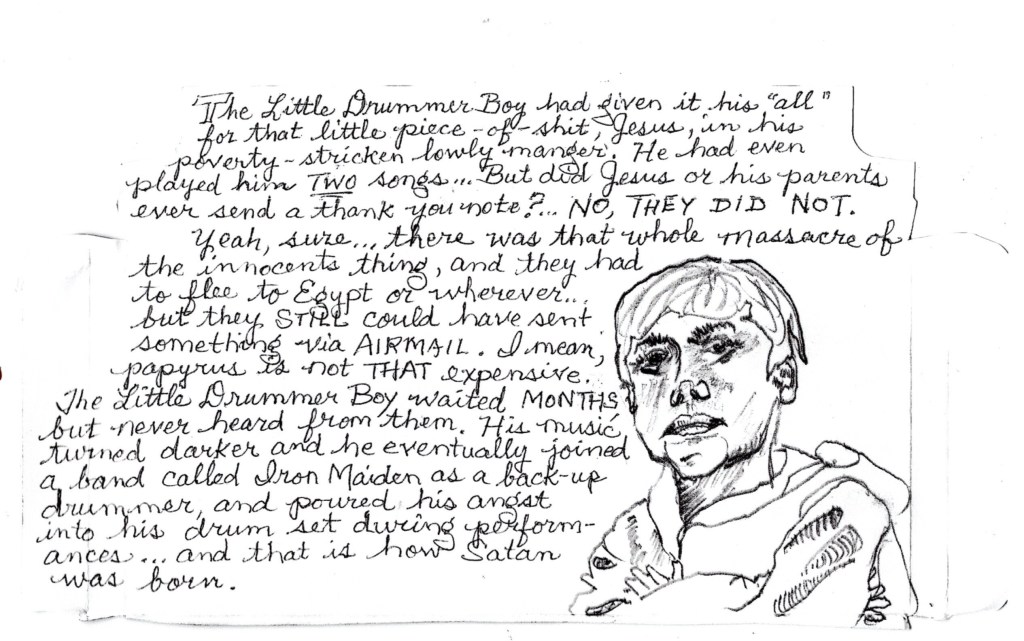 The Little Drummer Boy had given it his "all"
for that little piece-of-shit, Jesus, in his
poverty-stricken lowly manger. He had even
played him TWO songs... But did Jesus or his parents
ever send a thank you note?... NO, THEY DID NOT.
Yeah, sure... there was that whole massacre of
the innocents thing, and they had
to flee to Egypt or wherever...
but they STILL could have sent
something via AIRMAIL. I mean,
papyrus is not THAT expensive.
The Little Drummer Boy waited MONTHS
but never heard from them. His music
turned darker and he eventually joined
a band called Iron Maiden as a back-up
drummer, and poured his angst
into his drum set during perform-
ances... and that is how Satan
was born.